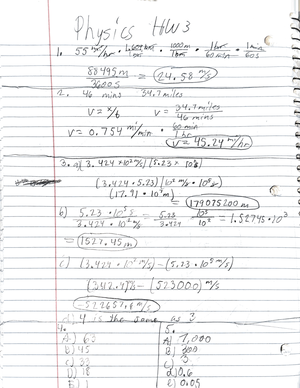 Physics HW3
1. 55 mi/hr · 1.609 km/1 mi · 1000m/1 km · 1 hr/60 min · 1 min/60 s
88495m/3600s = 24.58 m/s
2. 46 mins 34.7 miles
V = x/t V = 34.7 miles/46 mins
V = 0.754 mi/min · 60 min/1 hr
V = 45.24 mi/hr
3. a) (3.424 × 10² m/s)(5.23 × 10⁵ s)
(3.424 · 5.23)(10² m/s · 10⁵ s)
(17.91 · 10⁷ m)
179075200 m
b) 5.23 · 10⁵ s / 3.424 · 10² m/s = 5.23/3.424 10⁵/10² = 1.52745 · 10³
= 1527.45 m
c) (3.424 · 10² m/s) - (5.23 · 10⁵ m/s)
(342.4) - (523000) m/s
-522657.6 m/s
d) 4 is the same as 3
4. 5.
A) 65 A) 7,000
B) 45 B) 300
C) 33 C) 3
D) 18 D) 0.6
E) 1 E) 0.05